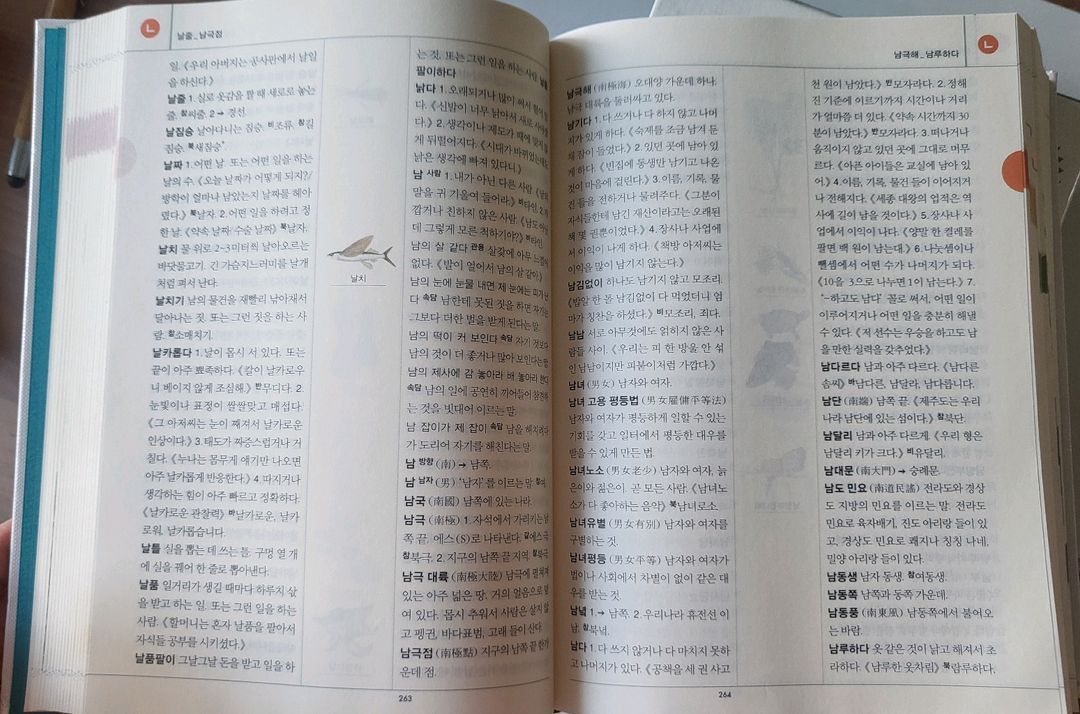 ㄴ
날줄_남극점
일.《우리 아버지는 공사판에서 날일
을 하신다.》
날줄 1.실로 옷감을 짤 때 세로로 놓는
줄. 참씨줄. 2 → 경선.
날짐승 날아다니는 짐승. 비조류. 참길
짐승. 북새짐승*.
날짜 1.어떤 날. 또는 어떤 일을 하는
날의 수.《오늘 날짜가 어떻게 되지?/
방학이 얼마나 남았는지 날짜를 헤아
렸다.》북날자. 2.어떤 일을 하려고 정
한 날.《약속 날짜/수술 날짜》북날자.
날치 물 위로 2~3미터씩 날아오르는
바닷물고기. 긴 가슴지느러미를 날개
처럼 펴서 난다.
날치기 남의 물건을 재빨리 낚아채서
달아나는 짓. 또는 그런 짓을 하는 사
람. 참소매치기.
날카롭다 1.날이 몹시 서 있다. 또는
끝이 아주 뾰족하다.《칼이 날카로우
니 베이지 않게 조심해.》반무디다. 2.
눈빛이나 표정이 쌀쌀맞고 매섭다.
《그 아저씨는 눈이 째져서 날카로운
인상이다.》3.태도가 짜증스럽거나 거
칠다.《누나는 몸무게 얘기만 나오면
아주 날카롭게 반응한다.》4.따지거나
생각하는 힘이 아주 빠르고 정확하다.
《날카로운 관찰력》바날카로운, 날카
로워, 날카롭습니다.
날틀 실을 뽑는 데 쓰는 틀. 구멍 열 개
에 실을 꿰어 한 줄로 뽑아낸다.
날품 일거리가 생길 때마다 하루치 삯
을 받고 하는 일. 또는 그런 일을 하는
사람.《할머니는 혼자 날품을 팔아서
자식들 공부를 시키셨다.》
날품팔이 그날그날 돈을 받고 일을 하
날치
는 것. 또는 그런 일을 하는 사람. 날품
팔이하다
낡다 1.오래되거나 많이 써서 헐어 있
다.《신발이 너무 낡아서 새로 사야
다.》2.생각이나 제도가 때에 맞지 않
게 뒤떨어지다.《시대가 바뀌었는데도
낡은 생각에 빠져 있다니.》
남 사람 1.내가 아닌 다른 사람.《남의
말을 귀 기울여 들어라.》비타인. 2.가
깝거나 친하지 않은 사람.《남도 아닌
데 그렇게 모른 척하기야?》비타인.
남의 살 같다 관용 살갗에 아무 느낌이
없다.《발이 얼어서 남의 살 같아.》
남의 눈에 눈물 내면 제 눈에는 피가 난
다 속담 남한테 못된 짓을 하면 자기는
그보다 더한 벌을 받게 된다는 말.
남의 떡이 커 보인다 속담 자기 것보다
남의 것이 더 좋거나 많아 보인다는 말
남의 제사에 감 놓아라 배 놓아라 한다
속담 남의 일에 공연히 끼어들어 참견하
는 것을 빗대어 이르는 말.
남 잡이가 제 잡이 속담 남을 해치려다
가 도리어 자기를 해친다는 말.
남 방향 (南) → 남쪽.
남 남자 (男) '남자'를 이르는 말. 참여.
남국 (南國) 남쪽에 있는 나라.
남극 (南極) 1.자석에서 가리키는 남
쪽 끝. 에스(S)로 나타낸다. 같에스극.
참북극. 2.지구의 남쪽 끝 지역. 참북극
남극 대륙 (南極大陸) 남극에 펼쳐져
있는 아주 넓은 땅. 거의 얼음으로 덮
여 있다. 몹시 추워서 사람은 살지 않
고 펭귄, 바다표범, 고래 들이 산다.
남극점 (南極點) 지구의 남쪽 끝 한가
운데 점.
263
남극해_남루하다
ㄴ
남극해 (南極海) 오대양 가운데 하나.
남극 대륙을 둘러싸고 있다.
남기다 1.다 쓰거나 다 하지 않고 나머
지가 있게 하다.《숙제를 조금 남겨 둔
채 잠이 들었다.》2.있던 곳에 남아 있
게 하다.《빈집에 동생만 남기고 나온
것이 마음에 걸린다.》3.이름, 기록, 물
건 들을 전하거나 물려주다.《그분이
자식들한테 남긴 재산이라고는 오래된
책 몇 권뿐이었다.》4.장사나 사업에
서 이익이 나게 하다.《책방 아저씨는
이익을 많이 남기지 않는다.》
남김없이 하나도 남기지 않고 모조리.
《밥알 한 올 남김없이 다 먹었더니 엄
마가 칭찬을 하셨다.》비모조리, 죄다.
남남 서로 아무것에도 얽히지 않은 사
람들 사이.《우리는 피 한 방울 안 섞
인 남남이지만 피붙이처럼 가깝다.》
남녀 (男女) 남자와 여자.
남녀 고용 평등법 (男女雇傭平等法)
남자와 여자가 평등하게 일할 수 있는
기회를 갖고 일터에서 평등한 대우를
받을 수 있게 만든 법.
남녀노소 (男女老少) 남자와 여자, 늙
은이와 젊은이. 곧 모든 사람.《남녀노
소가 다 좋아하는 음악》북남녀로소.
남녀유별 (男女有別) 남자와 여자를
구별하는 것.
남녀평등 (男女平等) 남자와 여자가
법이나 사회에서 차별이 없이 같은 대
우를 받는 것.
남녘 1.→ 남쪽. 2.우리나라 휴전선 이
남. 참북녘.
남다 1.다 쓰지 않거나 다 마치지 못하
고 나머지가 있다.《공책을 세 권 사고
천 원이 남았다.》반모자라다. 2.정해
진 기준에 이르기까지 시간이나 거리
가 얼마쯤 더 있다.《약속 시간까지 30
분이 남았다.》반모자라다. 3.떠나거나
움직이지 않고 있던 곳에 그대로 머무
르다.《아픈 아이들은 교실에 남아 있
어.》4.이름, 기록, 물건 들이 이어지거
나 전해지다.《세종 대왕의 업적은 역
사에 길이 남을 것이다.》5.장사나 사
업에서 이익이 나다.《양말 한 켤레를
팔면 백 원이 남는대.》6.나눗셈이나
뺄셈에서 어떤 수가 나머지가 되다.
《10을 3으로 나누면 1이 남는다.》7.
'-하고도 남다' 꼴로 써서, 어떤 일이
이루어지거나 어떤 일을 충분히 해낼
수 있다.《저 선수는 우승을 하고도 남
을 만한 실력을 갖추었다.》
남다르다 남과 아주 다르다.《남다른
솜씨》바남다른, 남달라, 남다릅니다.
남단 (南端) 남쪽 끝.《제주도는 우리
나라 남단에 있는 섬이다.》참북단.
남달리 남과 아주 다르게.《우리 형은
남달리 키가 크다.》비유달리.
남대문 (南大門) → 숭례문.
남도 민요 (南道民謠) 전라도와 경상
도 지방의 민요를 이르는 말. 전라도
민요로 육자배기, 진도 아리랑 들이 있
고, 경상도 민요로 쾌지나 칭칭 나네,
밀양 아리랑 들이 있다.
남동생 남자 동생. 참여동생.
남동쪽 남쪽과 동쪽 가운데.
남동풍 (南東風) 남동쪽에서 불어오
는 바람.
남루하다 옷 같은 것이 낡고 해져서 초
라하다.《남루한 옷차림》북람루하다.
264